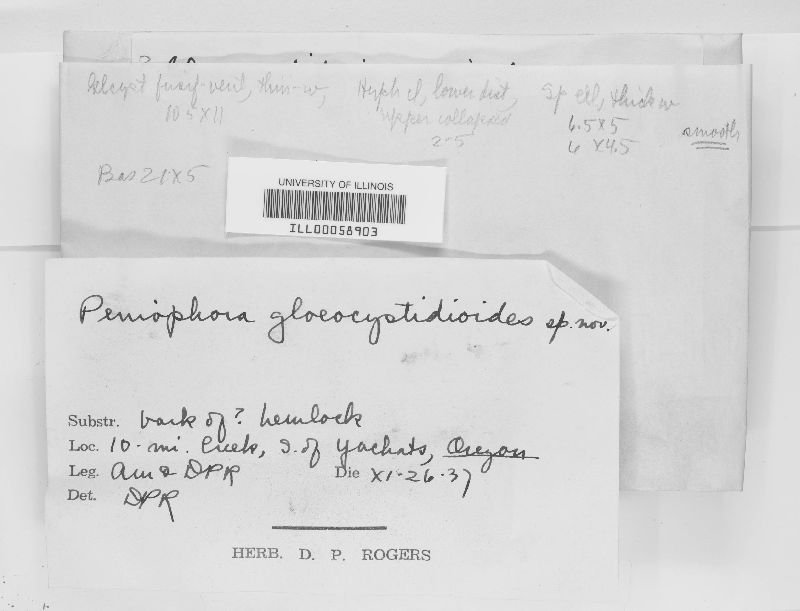 fusif-vent, thin-w,
105 X 11
Hyph cl, lower dist,
upper collapsed
2-5
Sp ell, thick w
6.5 X 5
6 X 4.5
smooth
Bas 21 X 5
UNIVERSITY OF ILLINOIS
ILL00058903
Peniophora gloeocystidioides sp. nov.
Substr. bark of ? hemlock
Loc. 10-mi. Creek, S. of Yachats, Oregon
Leg. AMR & DPR Die XI-26-37
Det. DPR
HERB. D. P. ROGERS